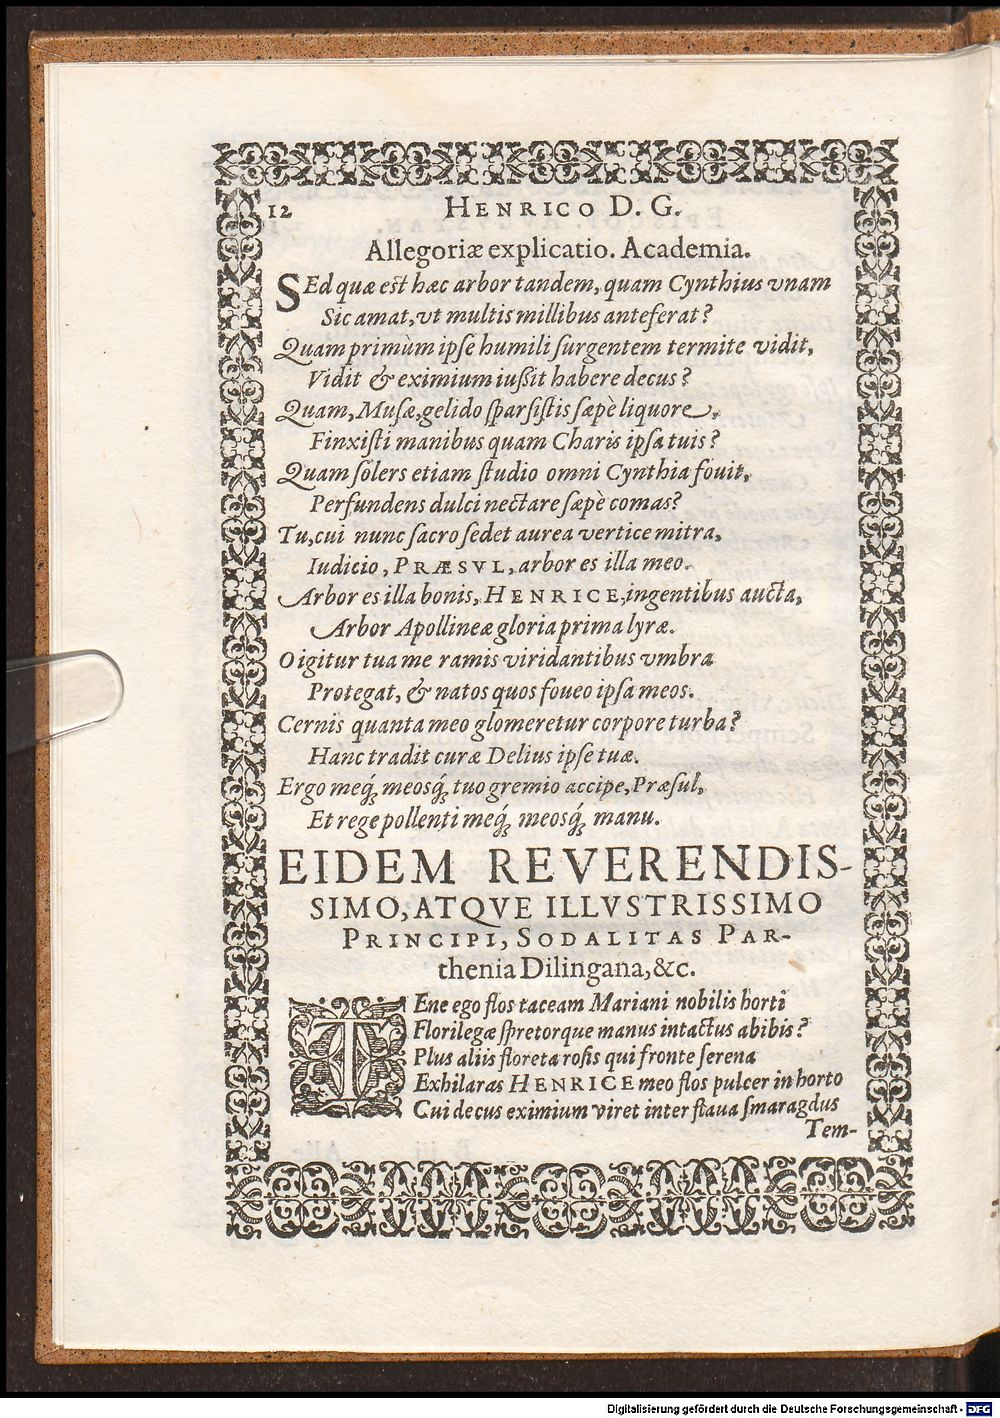 12 HENRICO D. G.
Allegoriæ explicatio. Academia.
SEd quæ est hæc arbor tandem, quam Cynthius vnam
Sic amat, vt multis millibus anteferat?
Quam primùm ipſe humili ſurgentem termite vidit,
Vidit & eximium iuſsit habere decus?
Quam, Muſæ, gelido ſparſiſtis ſæpè liquore,
Finxiſti manibus quam Charis ipſa tuis?
Quam ſolers etiam ſtudio omni Cynthia fouit,
Perfundens dulci nectare ſæpè comas?
Tu, cui nunc ſacro ſedet aurea vertice mitra,
Iudicio, PRÆSVL, arbor es illa meo.
Arbor es illa bonis, HENRICE, ingentibus aucta,
Arbor Apollineæ gloria prima lyræ.
O igitur tua me ramis viridantibus vmbra
Protegat, & natos quos foueo ipſa meos.
Cernis quanta meo glomeretur corpore turba?
Hanc tradit curæ Delius ipſe tuæ.
Ergo meq́; meosq́; tuo gremio accipe, Præſul,
Et rege pollenti meq́; meosq́; manu.
EIDEM REVERENDIS-
SIMO, ATQVE ILLVSTRISSIMO
PRINCIPI, SODALITAS PAR-
thenia Dilingana, &c.
TEne ego flos taceam Mariani nobilis horti
Florilegæ ſpretorque manus intactus abibis?
Plus aliis floreta roſis qui fronte ſerena
Exhilaras HENRICE meo flos pulcer in horto
Cui decus eximium viret inter flaua ſmaragdus
Tem-
Digitalisierung gefördert durch die Deutsche Forschungsgemeinschaft - DFG